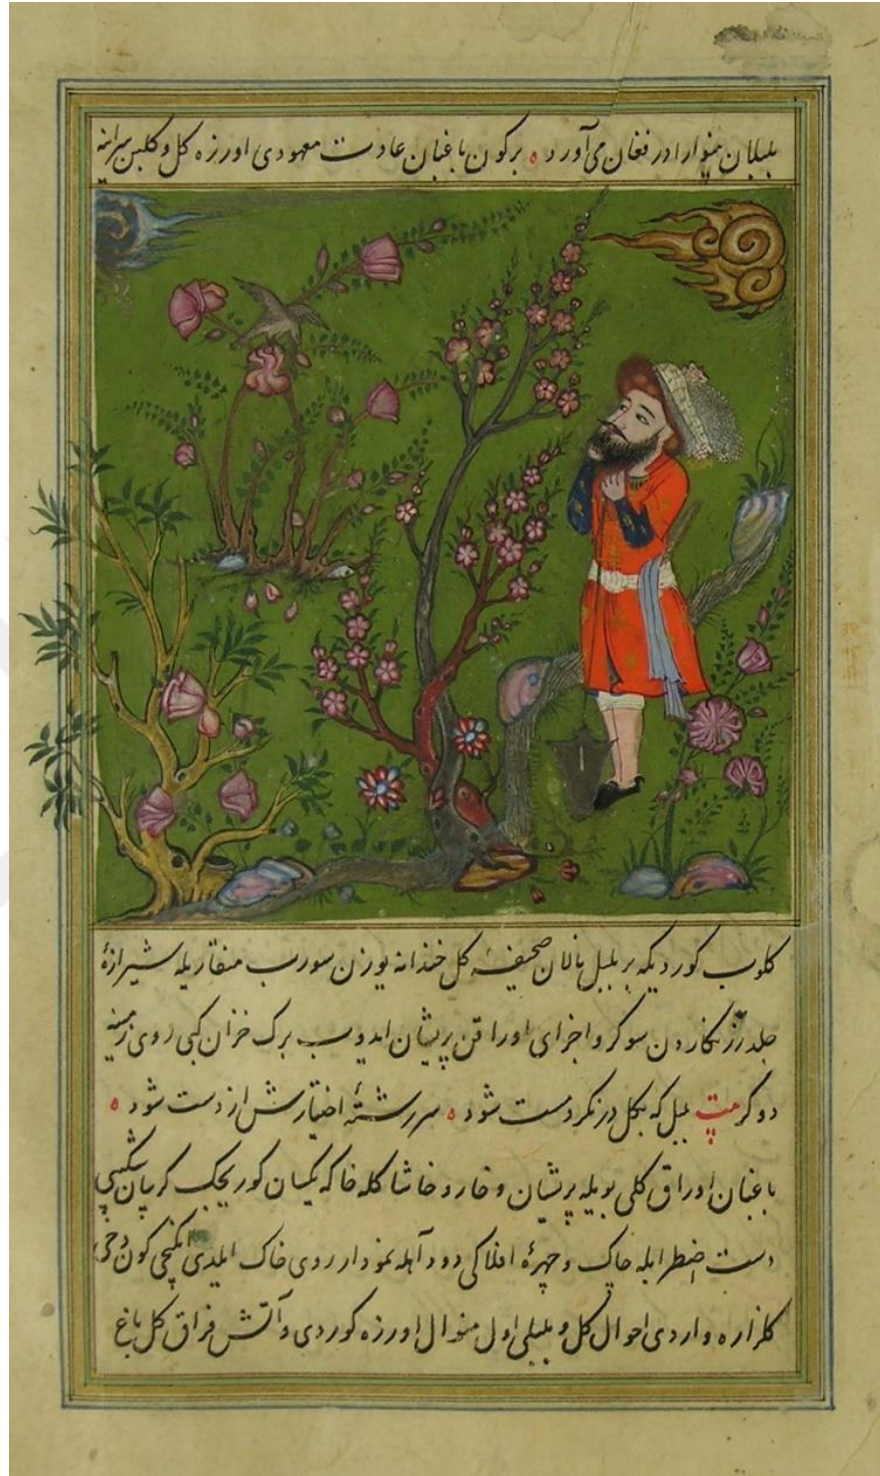 بلبلان بینوا را در فغان می آورد ه برکون باغبان عادت معهودی اورزه کل و کلبن سیرانه
کلوب کوردیکه بر بلبل نالان صحیفهٔ کل خندانه یوزن سورب منقاریله شیرازهٔ
جلد زرنکارن سوکر و اجزای اوراقن پریشان ایدوب برک خزان کبی روی زمینه
دوکر بیت بلبل که بکل درنکرد مست شود ه سررشتهٔ اختیارش از دست شود ه
باغبان اوراق کلی بویله پریشان و خار و خاشاکله خاکه یکسان کوریجک کریبان شکیبی
دست اضطرابله چاک و چهرهٔ افلاکی دود آهله نمودار روی خاک ایلدی ایکنجی کون دخی
کلزاره واردی احوال کل و بلبلی اول منوال اورزه کوردی و آتش فراق کل باغ